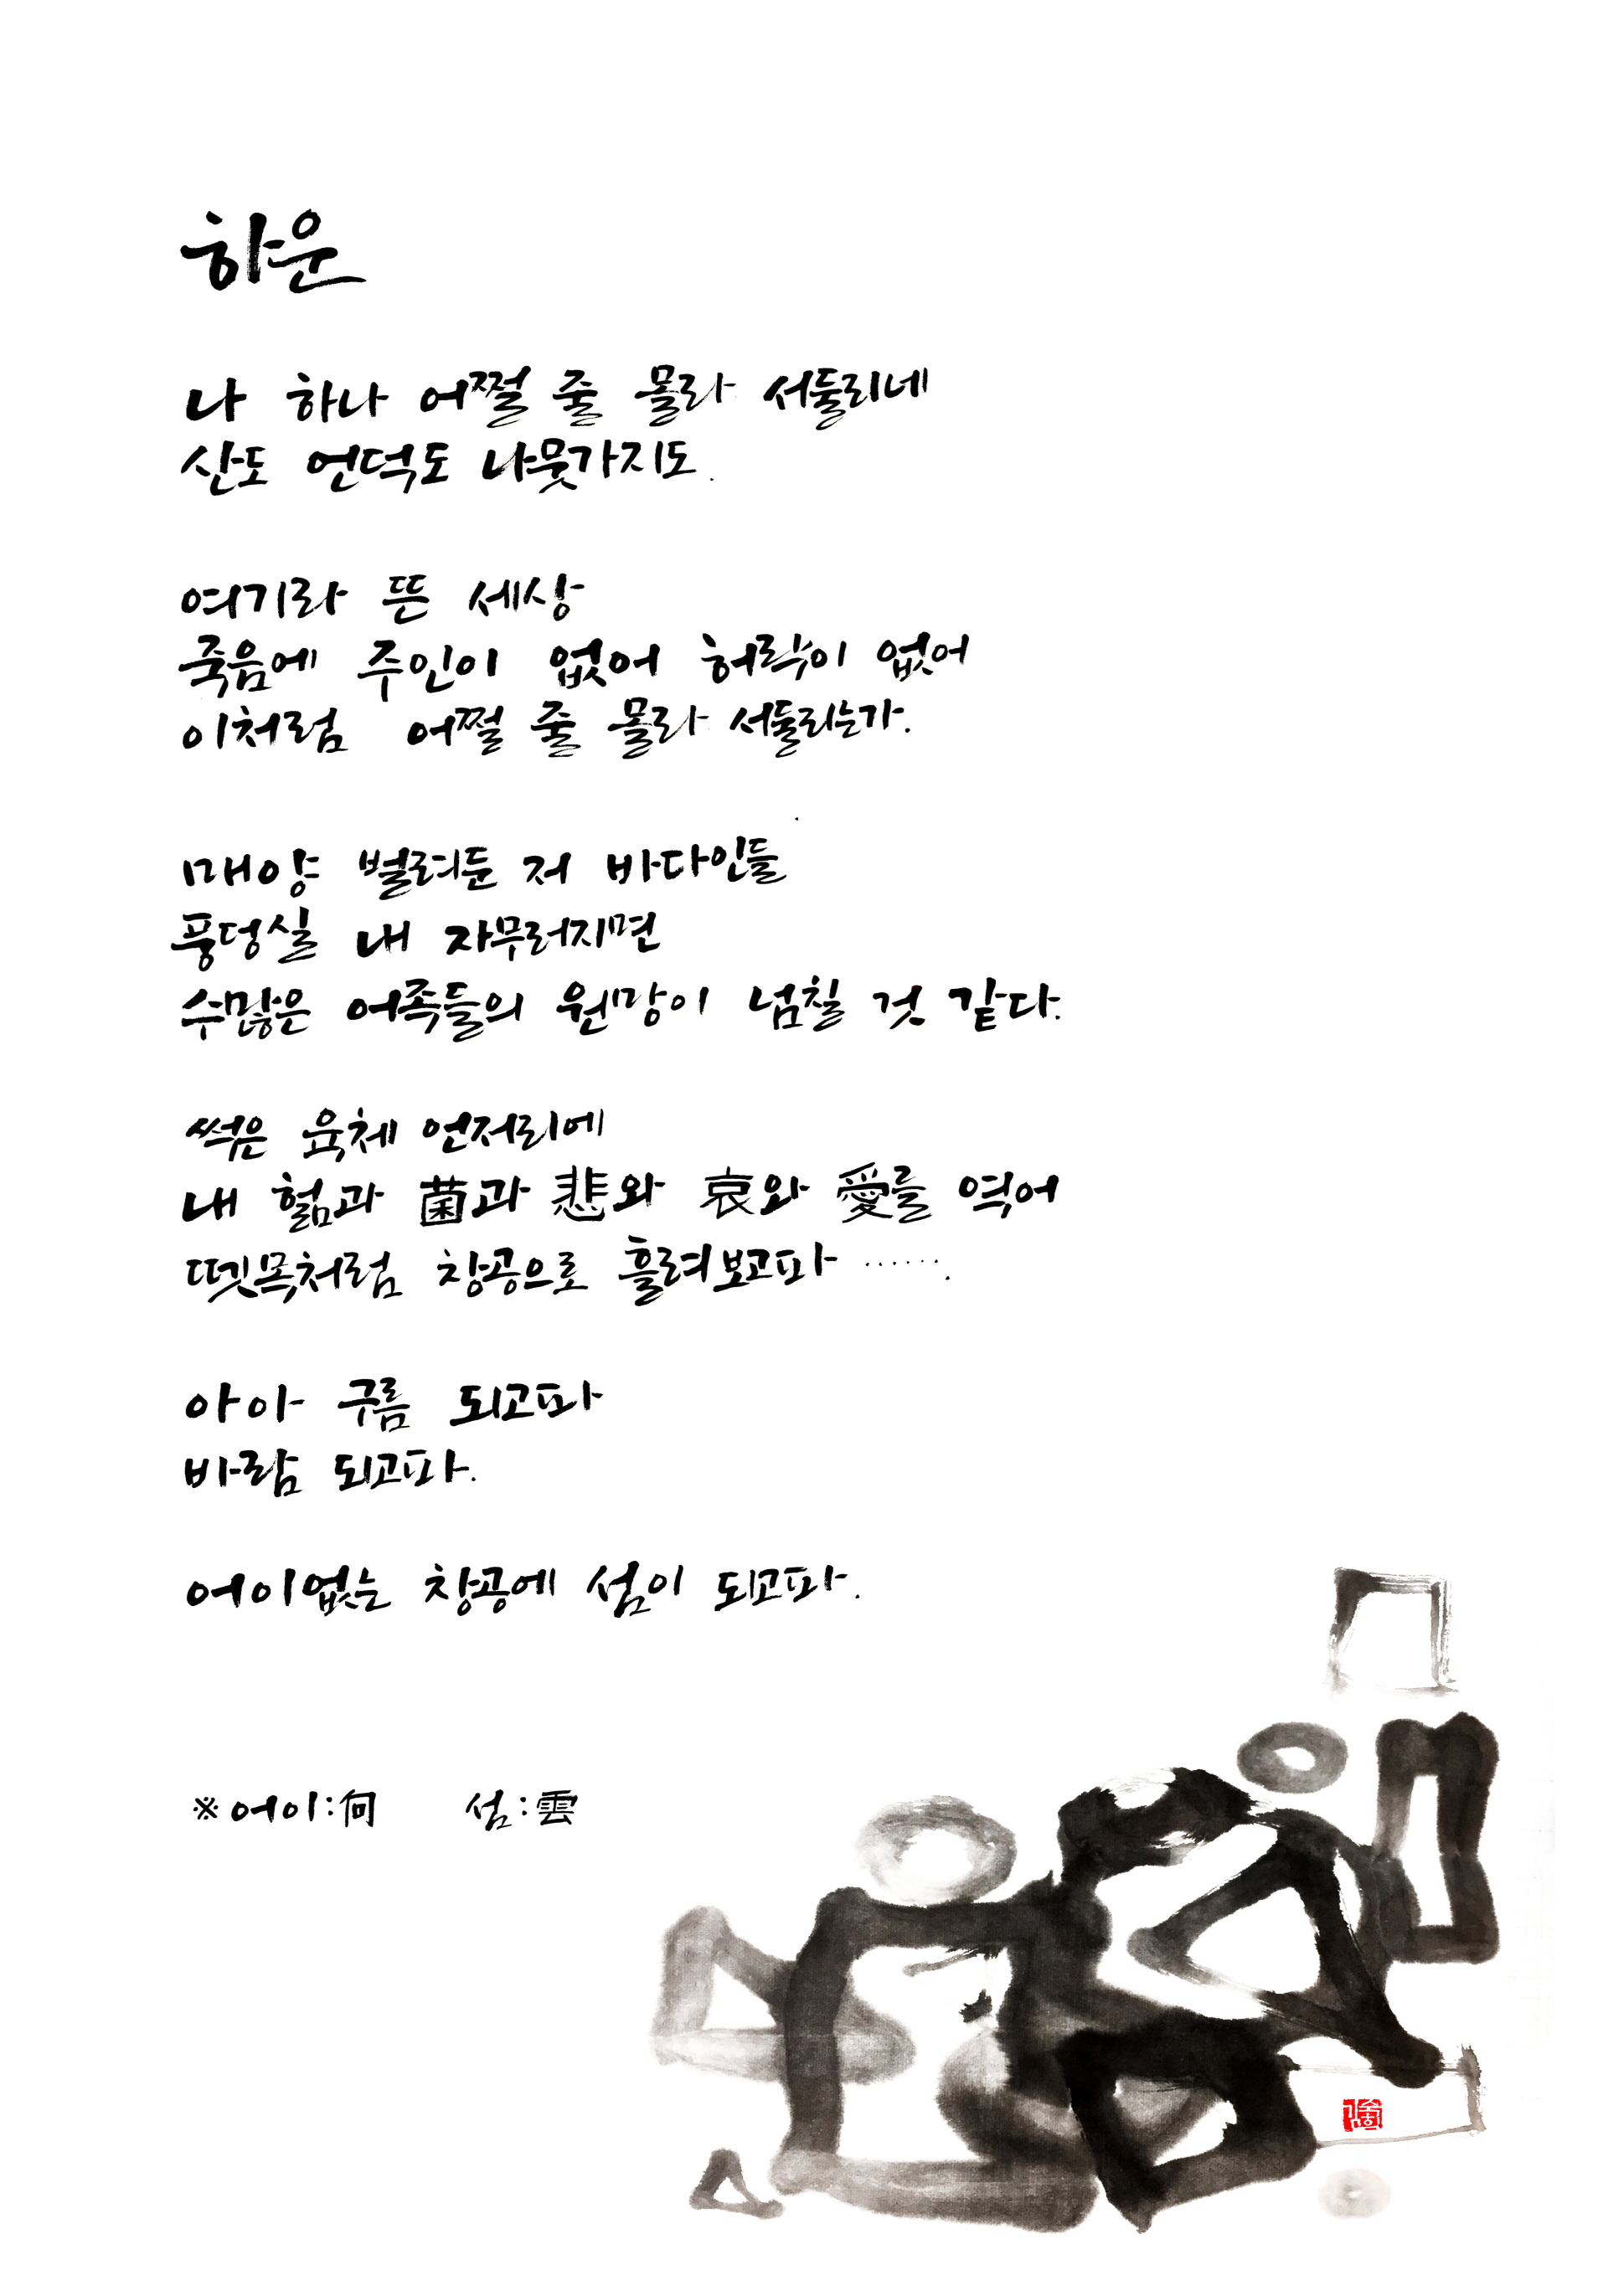 하운
나 하나 어쩔 줄 몰라 서둘리네
산도 언덕도 나뭇가지도.
여기라 뜬 세상
죽음에 주인이 없어 허락이 없어
이처럼 어쩔 줄 몰라 서둘리는가.
매양 벌려둔 저 바다인들
풍덩실 내 자무러지면
수많은 어족들의 원망이 넘칠 것 같다.
썩은 육체 언저리에
내 헒과 菌과 悲와 哀와 愛를 엮어
뗏목처럼 창공으로 흘려보고파 …….
아아 구름 되고파
바람 되고파.
어이없는 창공에 섬이 되고파.
※어이:何 섬:雲